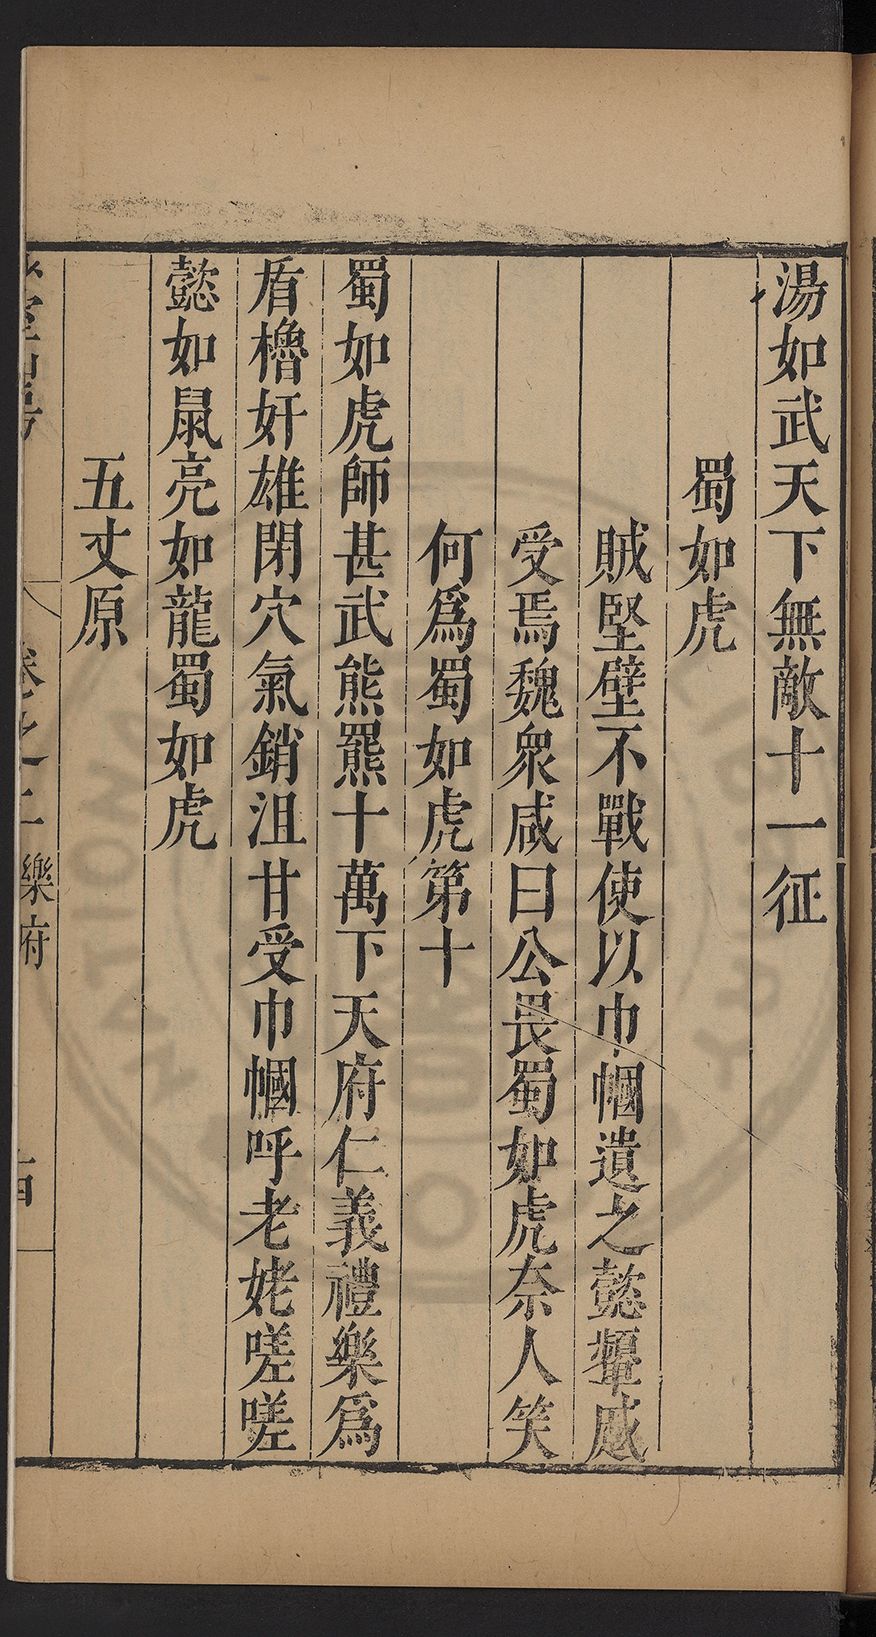 湯如武天下無敵十一征
蜀如虎
賊堅壁不戰使以巾幗遺之懿顰戚
受焉魏衆咸曰公畏蜀如虎奈人笑
何爲蜀如虎第十
蜀如虎師甚武熊羆十萬下天府仁義禮樂爲
盾櫓奸雄閉穴氣銷沮甘受巾幗呼老姥嗟嗟
懿如鼠亮如龍蜀如虎
五丈原
卷之二 樂府